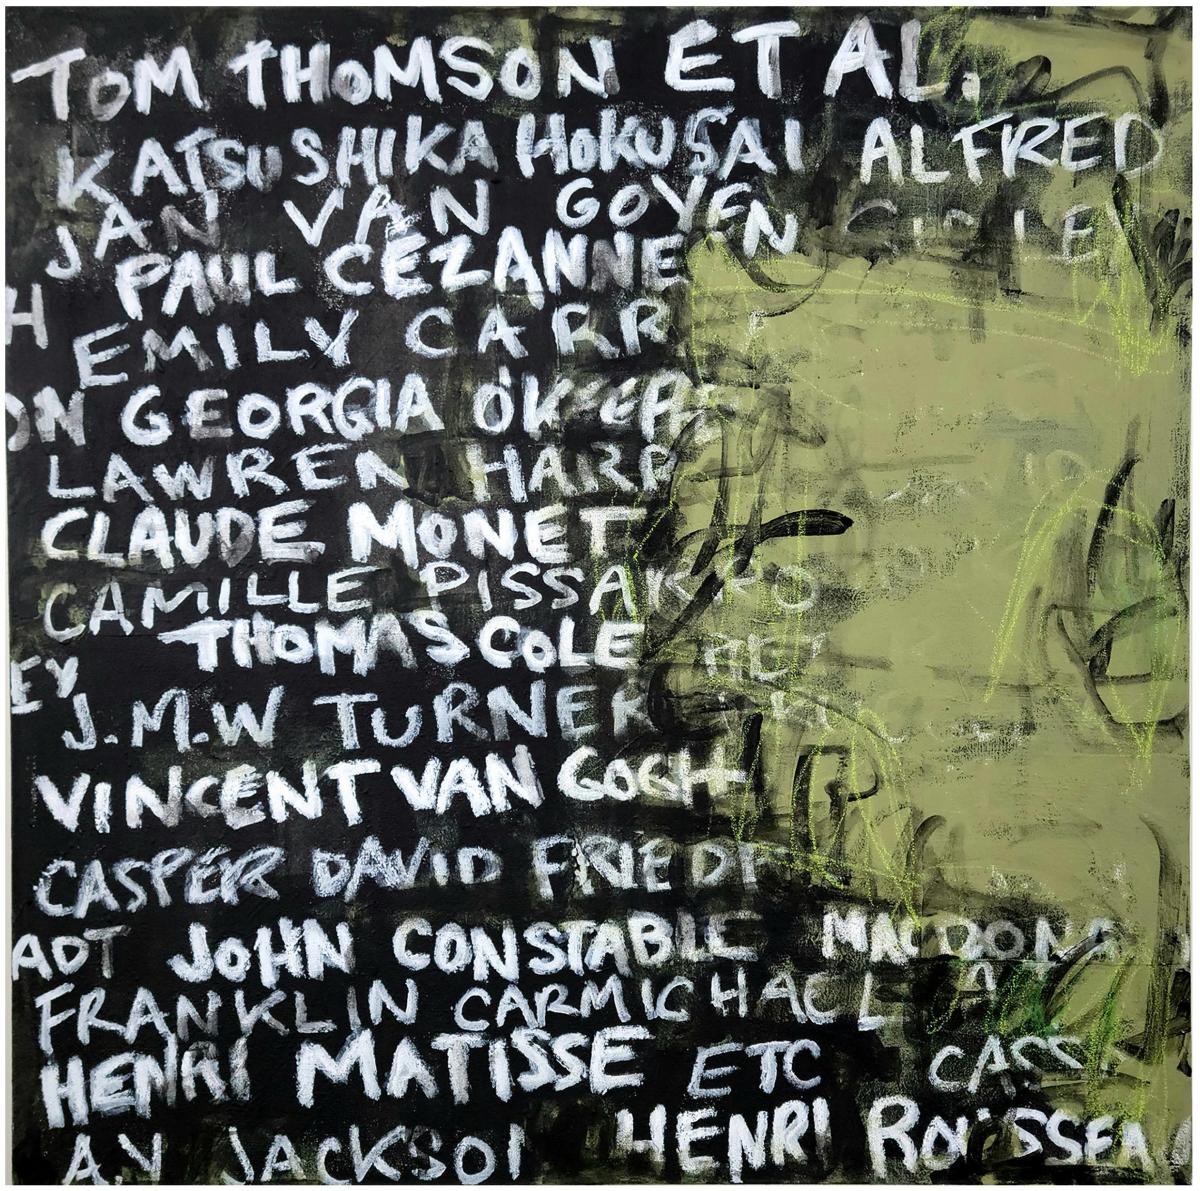 TOM THOMSON ET AL.
KATSUSHIKA HOKUSAI ALFRED
JAN VAN GOYEN
PAUL CÉZANNE
H EMILY CARR
ON GEORGIA O'KEEFE
LAWREN HARR
CLAUDE MONET
CAMILLE PISSARRO
THOMAS COLE
EY
J.M.W TURNER
VINCENT VAN GOGH
CASPER DAVID FRIEDR
ADT JOHN CONSTABLE MACDONA
FRANKLIN CARMICHAEL A
HENRI MATISSE ETC CASS
A.Y JACKSON HENRI ROUSSEA